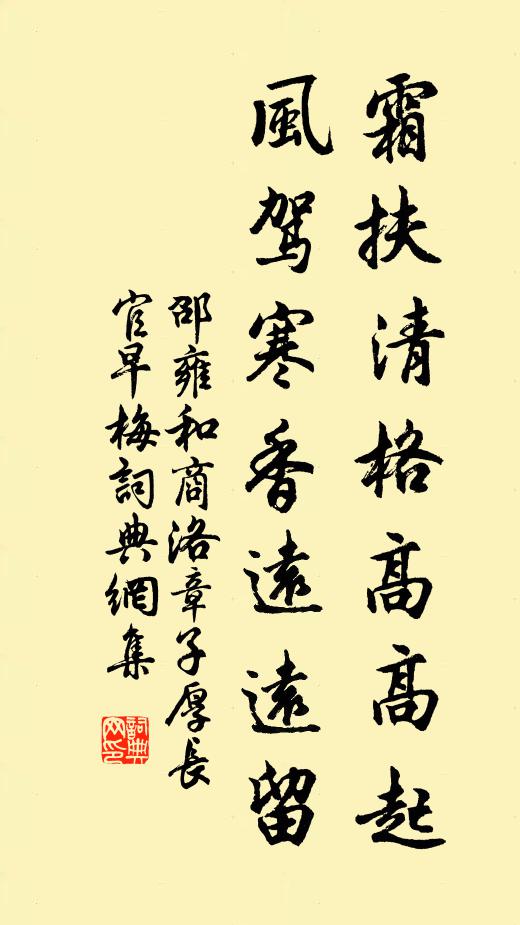 霜扶清格高高起
風駕寒香遠遠留
邵雍和商洛章子厚長
官早梅詞典網集
詞典
网印